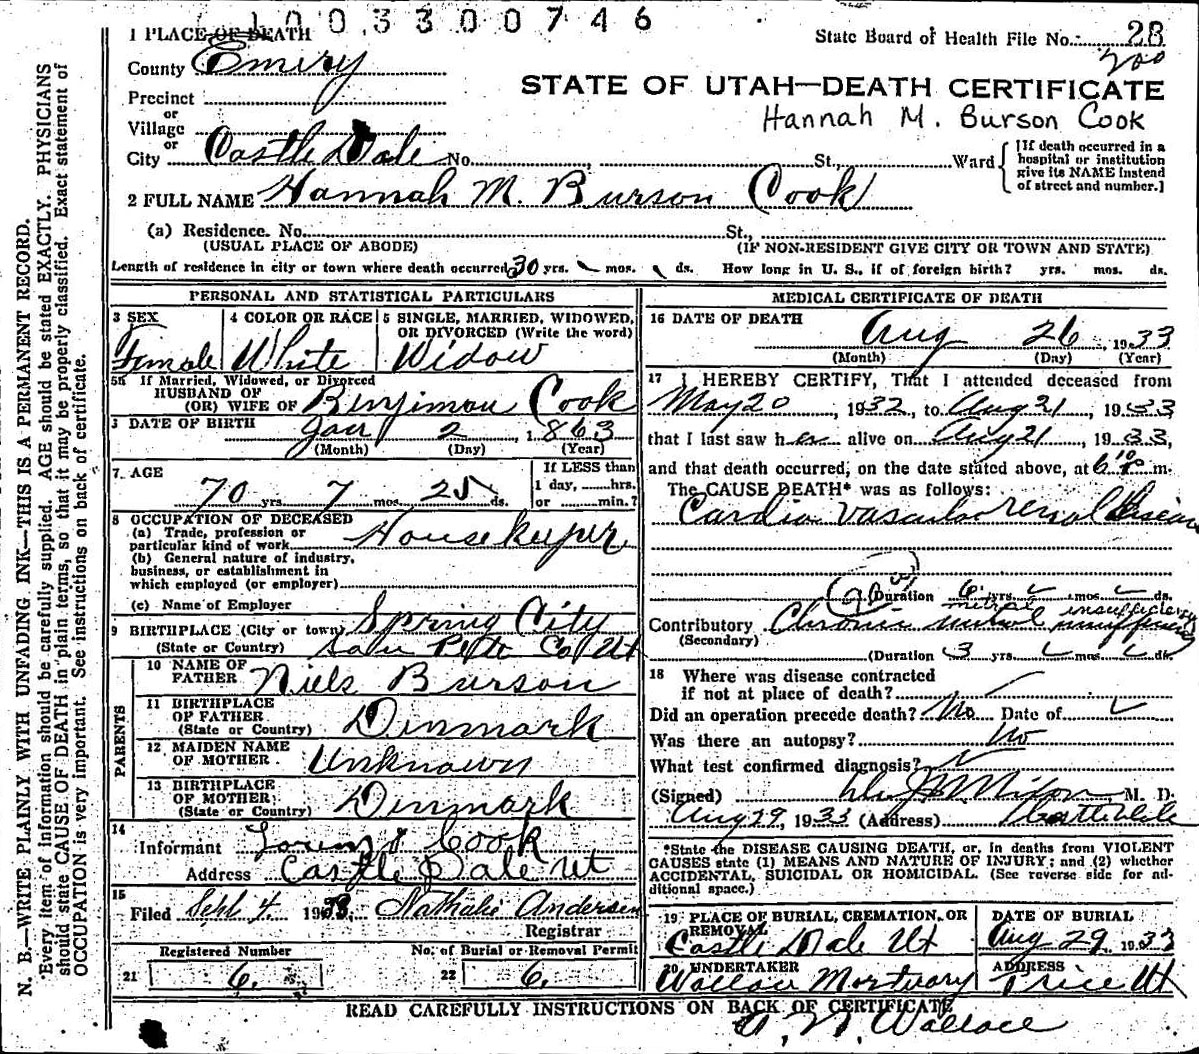 1003300746
1 PLACE OF DEATH
State Board of Health File No. 28
200
County Emery
STATE OF UTAH—DEATH CERTIFICATE
Precinct
or
Hannah M. Burson Cook
Village
or
City Castle Dale No. St., Ward
[If death occurred in a hospital or institution give its NAME instead of street and number.]
2 FULL NAME Hannah M. Burson Cook
(a) Residence. No. St.,
(USUAL PLACE OF ABODE) (IF NON-RESIDENT GIVE CITY OR TOWN AND STATE)
Length of residence in city or town where death occurred 30 yrs. mos. ds. How long in U. S., if of foreign birth? yrs. mos. ds.
PERSONAL AND STATISTICAL PARTICULARS
3 SEX Female
4 COLOR OR RACE White
5 SINGLE, MARRIED, WIDOWED, OR DIVORCED (Write the word) Widow
5a If Married, Widowed, or Divorced
HUSBAND OF
(OR) WIFE OF Benjiman Cook
DATE OF BIRTH Jan 2, 1863
(Month) (Day) (Year)
7. AGE
70 yrs. 7 mos. 25 ds.
If LESS than
1 day, hrs.
or min.?
8 OCCUPATION OF DECEASED
(a) Trade, profession or
particular kind of work Housekeeper
(b) General nature of industry,
business, or establishment in
which employed (or employer)
(c) Name of Employer
9 BIRTHPLACE (City or town) Spring City
(State or Country) San Pete Co Ut
PARENTS
10 NAME OF
FATHER Niels Burson
11 BIRTHPLACE
OF FATHER
(State or Country) Dinmark
12 MAIDEN NAME
OF MOTHER Unknown
13 BIRTHPLACE
OF MOTHER
(State or Country) Dinmark
14
Informant Cook
Address Castle Dale Ut
15
Filed Sept. 4. 1933, Nathalie Andersen
Registrar
Registered Number
21 6.
No. of Burial or Removal Permit
22 6.
MEDICAL CERTIFICATE OF DEATH
16 DATE OF DEATH
Aug 26, 1933
(Month) (Day) (Year)
17 I HEREBY CERTIFY, That I attended deceased from
May 20, 1932, to Aug 21, 1933
that I last saw her alive on Aug 21, 1933,
and that death occurred, on the date stated above, at 6 10 P. m.
The CAUSE DEATH* was as follows:
Cardio vascular renal disease
(Duration 6 yrs. mos. ds.
mitral insufficiency
Contributory Chronic mitral insufficiency
(Secondary)
(Duration 3 yrs. mos. ds.
18 Where was disease contracted
if not at place of death?
Did an operation precede death? No Date of
Was there an autopsy? No
What test confirmed diagnosis?
(Signed) M. D.
Aug 29, 1933 (Address) Castle Dale
*State the DISEASE CAUSING DEATH, or, in deaths from VIOLENT
CAUSES state (1) MEANS AND NATURE OF INJURY; and (2) whether
ACCIDENTAL, SUICIDAL OR HOMICIDAL. (See reverse side for ad-
ditional space.)
19 PLACE OF BURIAL, CREMATION, OR
REMOVAL
Castle Dale Ut
DATE OF BURIAL
Aug 29, 1933
20 UNDERTAKER
Wallace Mortuary
ADDRESS
Price Ut
READ CAREFULLY INSTRUCTIONS ON BACK OF CERTIFICATE
Wallace
N. B.—WRITE PLAINLY WITH UNFADING INK—THIS IS A PERMANENT RECORD.
Every item of information should be carefully supplied. AGE should be stated EXACTLY. PHYSICIANS
should state CAUSE OF DEATH in plain terms, so that it may be properly classified. Exact statement of
OCCUPATION is very important. See instructions on back of certificate.